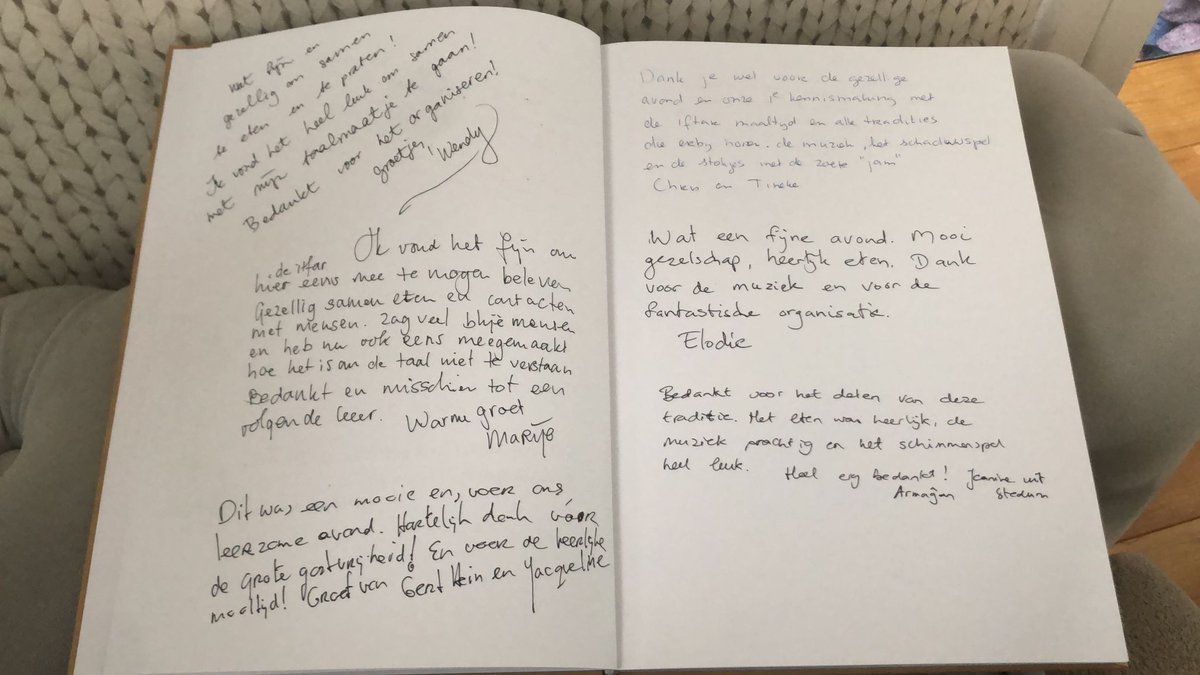 Wat fijn en
gezellig om samen
te eten en te praten!
Ik vond het heel leuk om samen
met mijn taalmaatje te gaan!
Bedankt voor het organiseren!
groetjes, Wendy
Ik vond het fijn om
de iftar
hier eens mee te mogen beleven
Gezellig samen eten en contacten
met mensen. Zag veel blije mensen
en heb nu ook eens meegemaakt
hoe het is om de taal niet te verstaan
Bedankt en misschien tot een
volgende keer. Warme groet
Marije
Dit was een mooie en, voor ons,
leerzame avond. Hartelijk dank vóór
de grote gastvrijheid! En voor de heerlijke
maaltijd! Groet van Gert Hein en Jacqueline
Dank je wel voor de gezellige
avond en onze 1e kennismaking met
de iftar maaltijd en alle tradities
die erbij horen. de muziek, het schaduwspel
en de stokjes met de zoete "jam"
en Tineke
Wat een fijne avond. Mooi
gezelschap, heerlijk eten. Dank
voor de muziek en voor de
fantastische organisatie.
Elodie
Bedankt voor het delen van deze
traditie. Het eten was heerlijk, de
muziek prachtig en het schimmenspel
heel leuk. Heel erg bedankt! Jeanine uit
Armağan Stedum